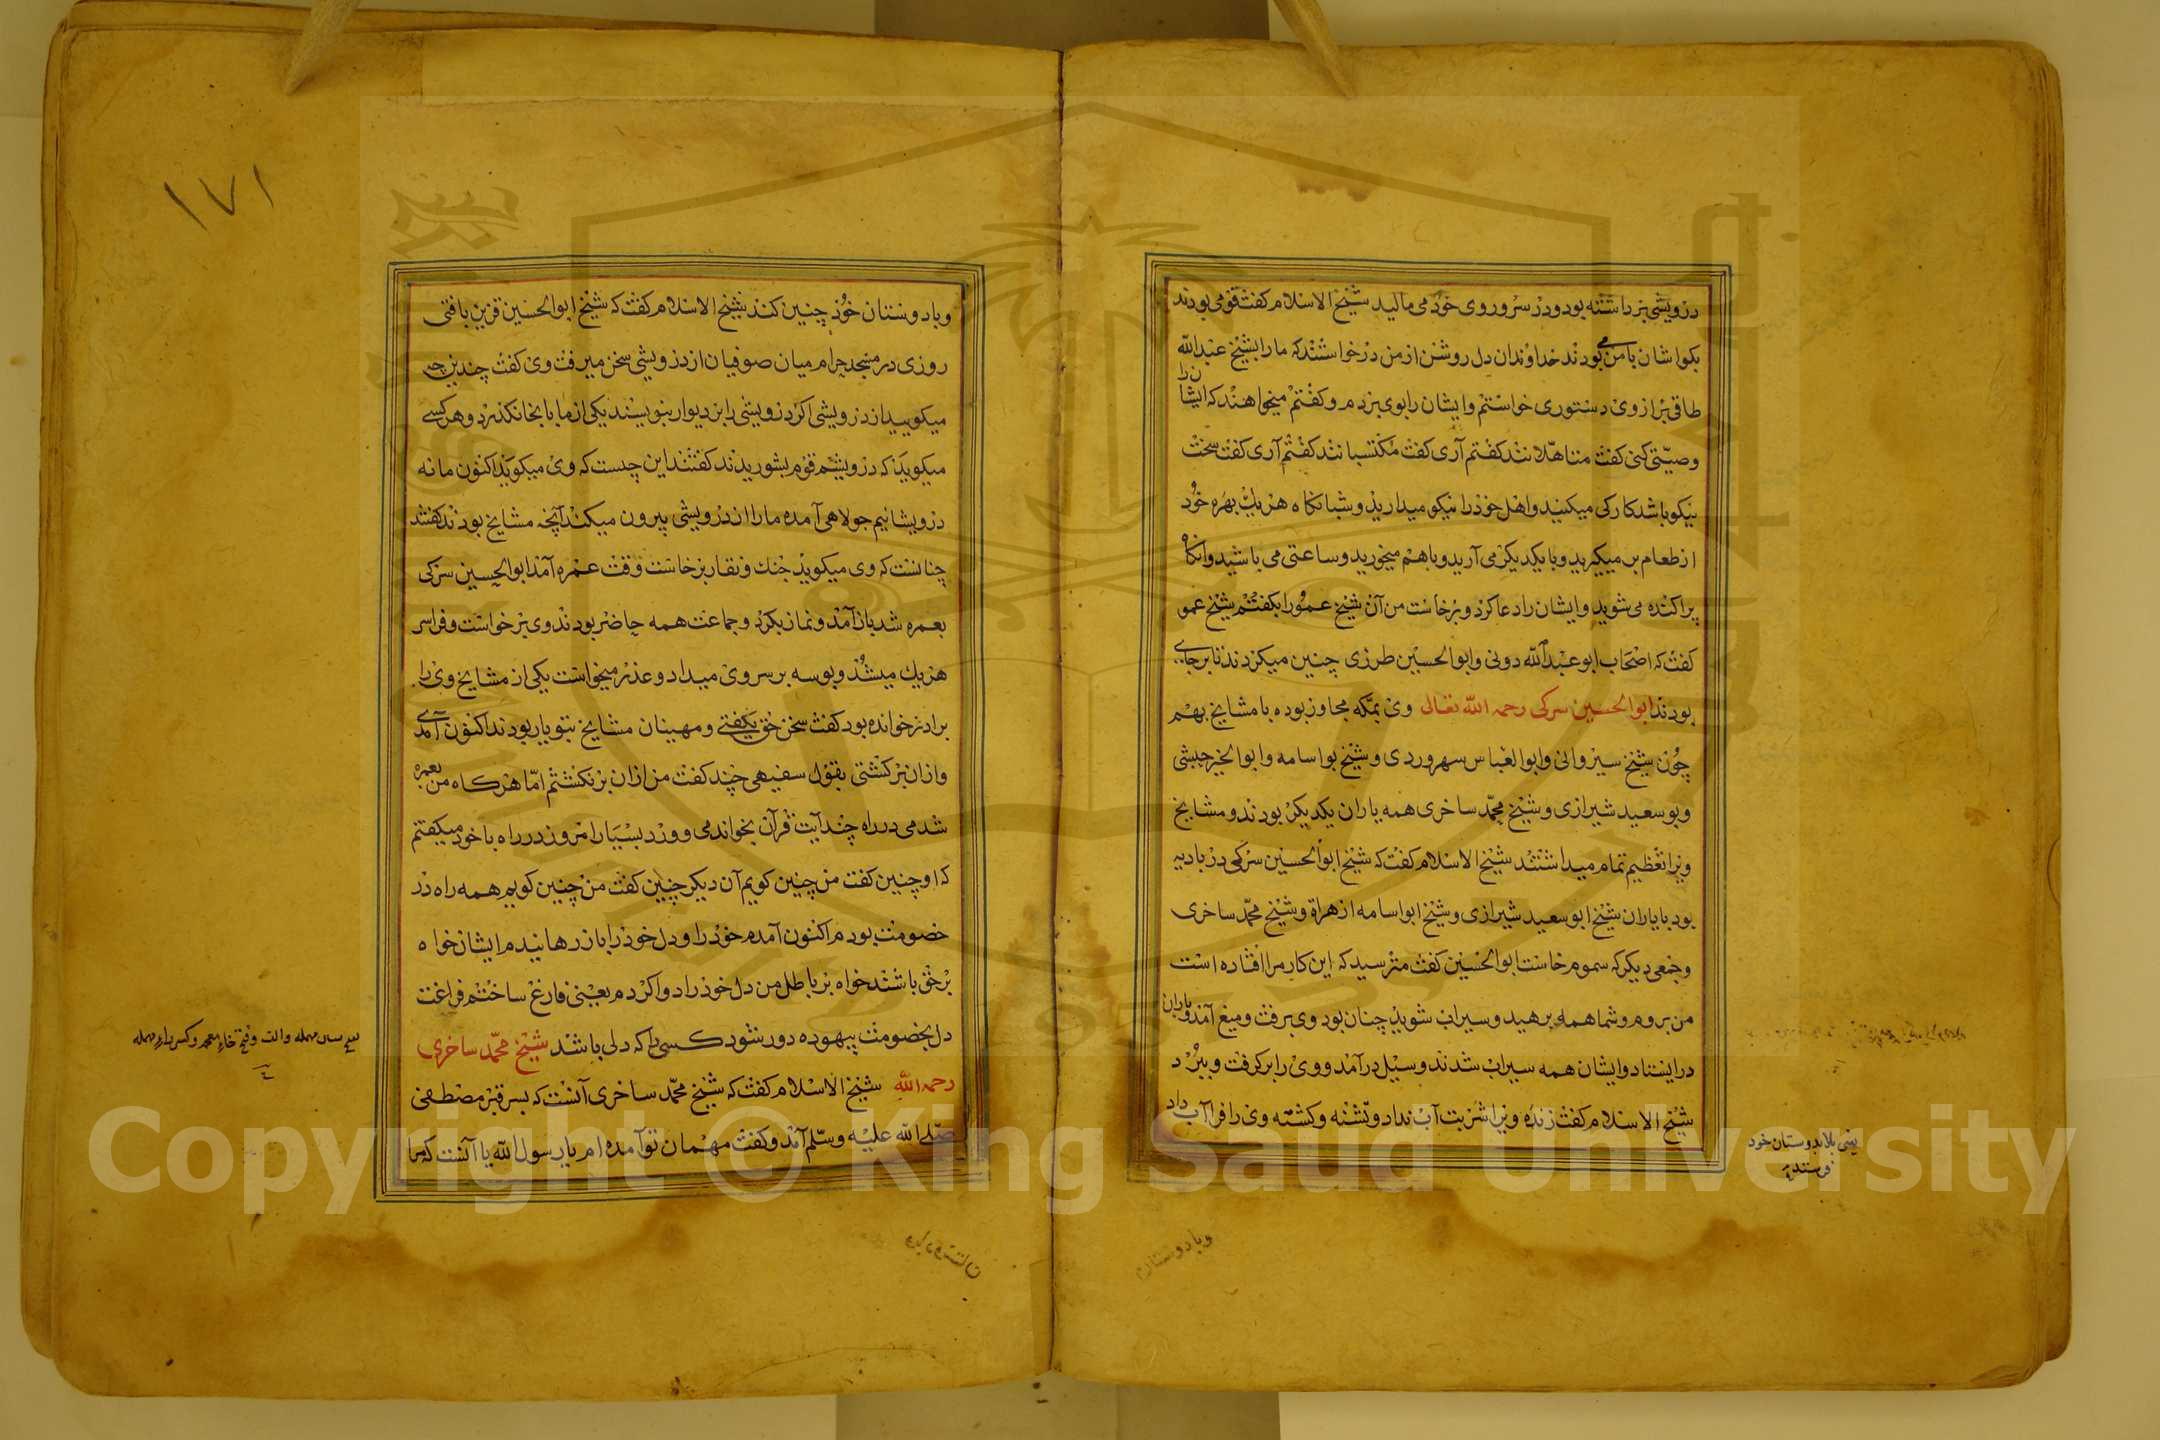 درویشی برداشته بود و در سر و روی خود می مالید شیخ الاسلام کفت قومی بودند
بکواشان با من می بودند خداوندان دل روشن از من درخواستند که ما را بشیخ عبدالله
طاقی بر از وی دستوری خواستم و ایشان را بوی بردم و کفتم میخواهند که ایشان را
وصیتی کنی کفت متاهلانند کفتم آری کفت مکتسبانند کفتم آری کفت سخت
نیکو باشد کار کی میکنید و اهل خود را نیکو میدارید و شبانکاه هر یک بهره خود
از طعام بر میکیرید و با یکدیکر می آرید و با هم میخورید و ساعتی می باشید و آنکاه
پراکنده می شوید و ایشان را دعا کرد و برخاست من آن شیخ عمو را بکفتم شیخ عمو
کفت که اصحاب ابو عبدالله دونی و ابوالحسین طرزی چنین میکردند تا برجای
بودند ابوالحسین سرکی رحمه الله تعالی وی بمکه مجاور بوده با مشایخ بهم
چون شیخ سیروانی و ابوالعباس سهروردی و شیخ بواسامه و ابوالخیر حبشی
و بوسعید شیرازی و شیخ محمد ساخری همه یاران یکدیکر بودند و مشایخ
ویرا تعظیم تمام میداشتند شیخ الاسلام کفت که شیخ ابوالحسین سرکی در بادیه
بود با یاران شیخ ابوسعید شیرازی و شیخ ابواسامه از هراة و شیخ محمد ساخری
و جمعی دیکر که سموم خاست ابوالحسین کفت مترسید که این کار مرا افتاده است
من بروم و شما همه برهید و سیراب شوید چنان بود وی برفت و میغ آمد و باران
درایستاد و ایشان همه سیراب شدند و سیل درآمد و وی را برکرفت و ببرد
شیخ الاسلام کفت زنده ویرا شربت آب نداد و تشنه و کشته وی را فرا آب داد
یعنی بلا بدوستان خود
فرستد
وبادوستان
۱۷۱
و با دوستان خود چنین کند شیخ الاسلام کفت که شیخ ابوالحسین قزین بافتی
روزی در مسجد حرام میان صوفیان از درویشی سخن میرفت وی کفت چندین چه
میکویید از درویشی اکر درویشی را بر دیوار بنویسند یکی از ما بانجا نکذرد و هر کسی
میکوید که درویشم قوم بشوریدند کفتند این چیست که وی میکوید اکنون ما نه
درویشانیم جولاهی آمده ما را از درویشی بیرون میکند آنچه مشایخ بودند کفتند
چنانست که وی میکوید جنک و نقار برخاست وقت عمره آمد ابوالحسین سرکی
بعمره شد باز آمد و نماز بکرد و جماعت همه حاضر بودند وی برخواست و فراسر
هر یک میشد و بوسه بر سر وی میداد و عذر میخواست یکی از مشایخ وی را
برادر خوانده بود کفت سخن حق بکفتی و مهینان مشایخ بتو یار بودند اکنون آمدی
و ازان برکشتی بقول سفیهی چند کفت من ازان برنکشتم اما هرکاه من بعمره
شدمی در راه چند آیت قرآن بخواندمی و ورد بسیار امروز در راه با خود میکفتم
که او چنین کفت من چنین کویم آن دیکر چنین کفت من چنین کویم همه راه در
خصومت بودم اکنون آمدم خود را و دل خود را باز رهانیدم ایشان خواه
بر حق باشند خواه بر باطل من دل خود را دوا کردم یعنی فارغ ساختم فراغت
دل بخصومت بیهوده دور شود کسی را که دلی باشد شیخ محمد ساخری
رحمه الله شیخ الاسلام کفت که شیخ محمد ساخری آنست که بسر قبر مصطفی
صلی الله علیه وسلم آمد و کفت مهمان تو آمده ام یا رسول الله یا آنست که مرا
سین مهمله والف وفتح خاء معجمه وکسر راء مهمله
Copyright © King Saud University